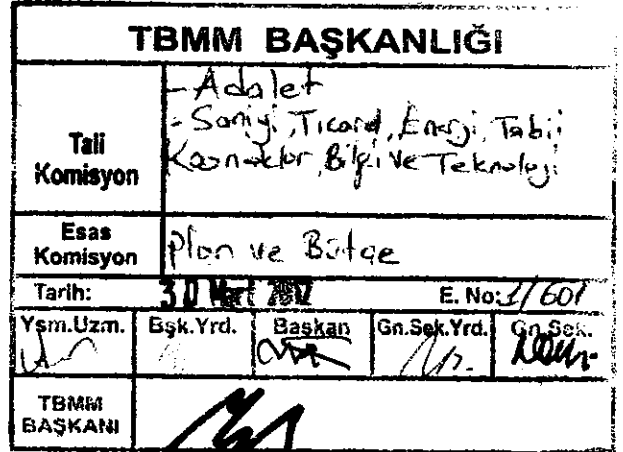 TBMM BAŞKANLIĞI
Tali Komisyon
- Adalet
- Sanayi, Ticaret, Enerji, Tabii
Kaynaklar, Bilgi ve Teknoloji
Esas Komisyon
Plan ve Bütçe
Tarih: 30 Mart E. No: 1/601
Ysm.Uzm. Bşk.Yrd. Başkan Gn.Sek.Yrd. Gn.Sek.
TBMM
BAŞKANI